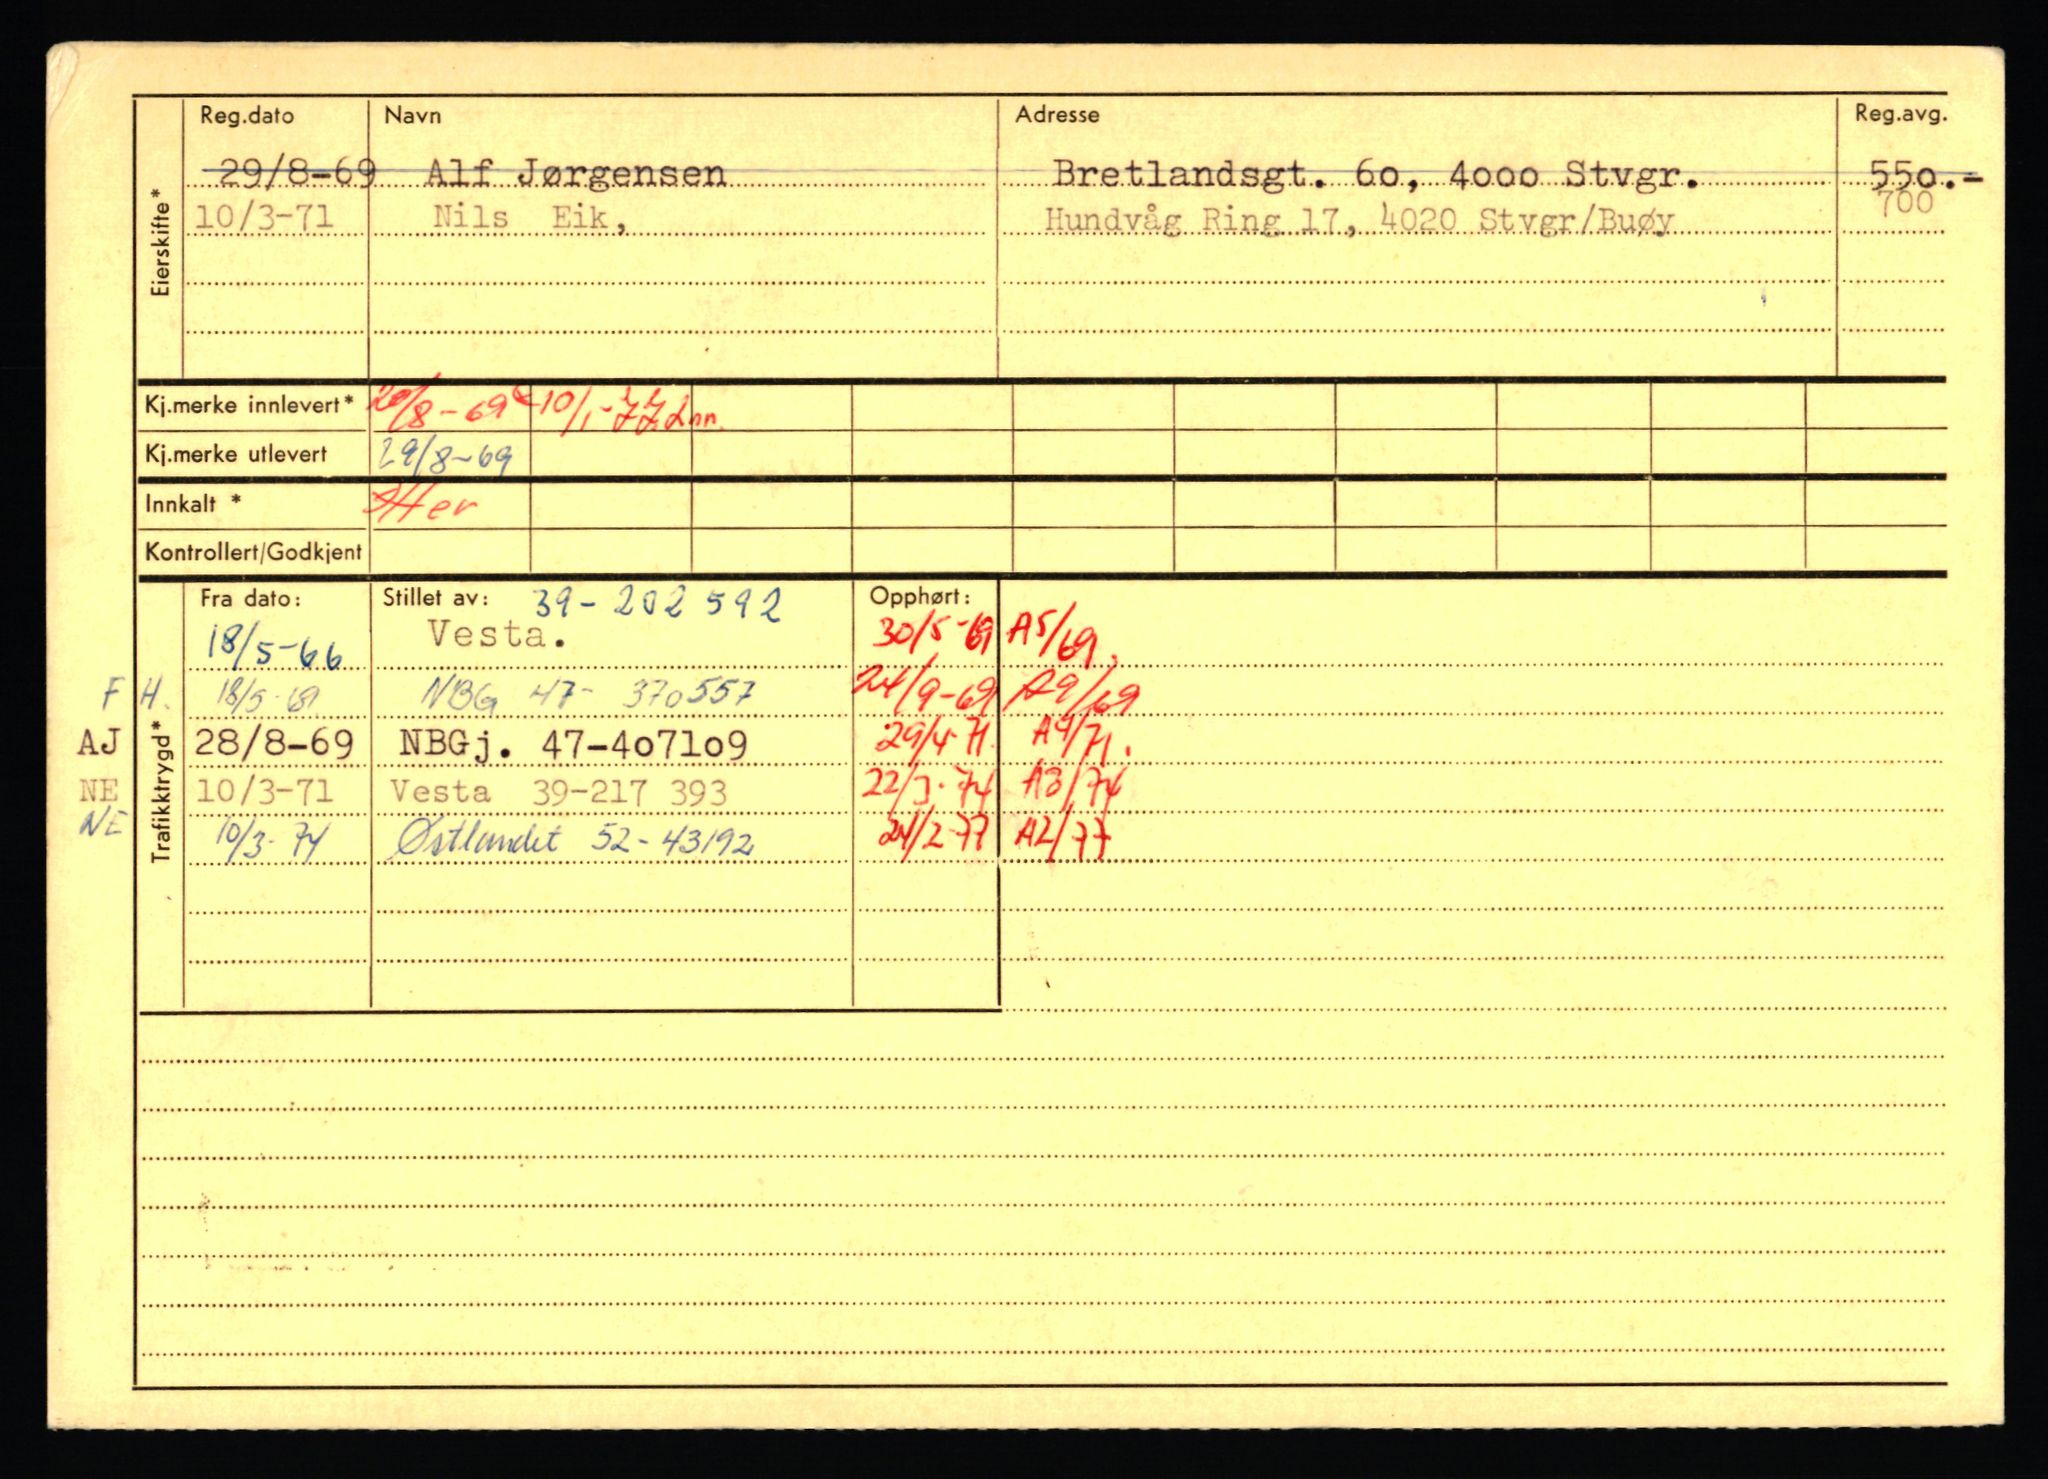 Reg.dato Navn Adresse Reg.avg.
29/8-69 Alf Jørgensen Bretlandsgt. 60, 4000 Stvgr. 550.-
10/3-71 Nils Eik, Hundvåg Ring 17, 4020 Stvgr/Buøy 700
Eierskifte*
Kj.merke innlevert* /8-69 10/1-77 Inn.
Kj.merke utlevert 29/8-69
Innkalt *
Kontrollert/Godkjent
Fra dato: Stillet av: 39-202592 Opphørt:
18/5-66 Vesta. 30/5-69 A5/69.
F H. 18/5-69 NBG 47-370557 24/9-69 A9/69
AJ 28/8-69 NBGj. 47-407109 29/4-71. A4/71.
NE 10/3-71 Vesta 39-217 393 22/3-74 A3/74
NE 10/3-74 Østlandet 52-43192 24/2-77 A2/77
Trafikktrygd*